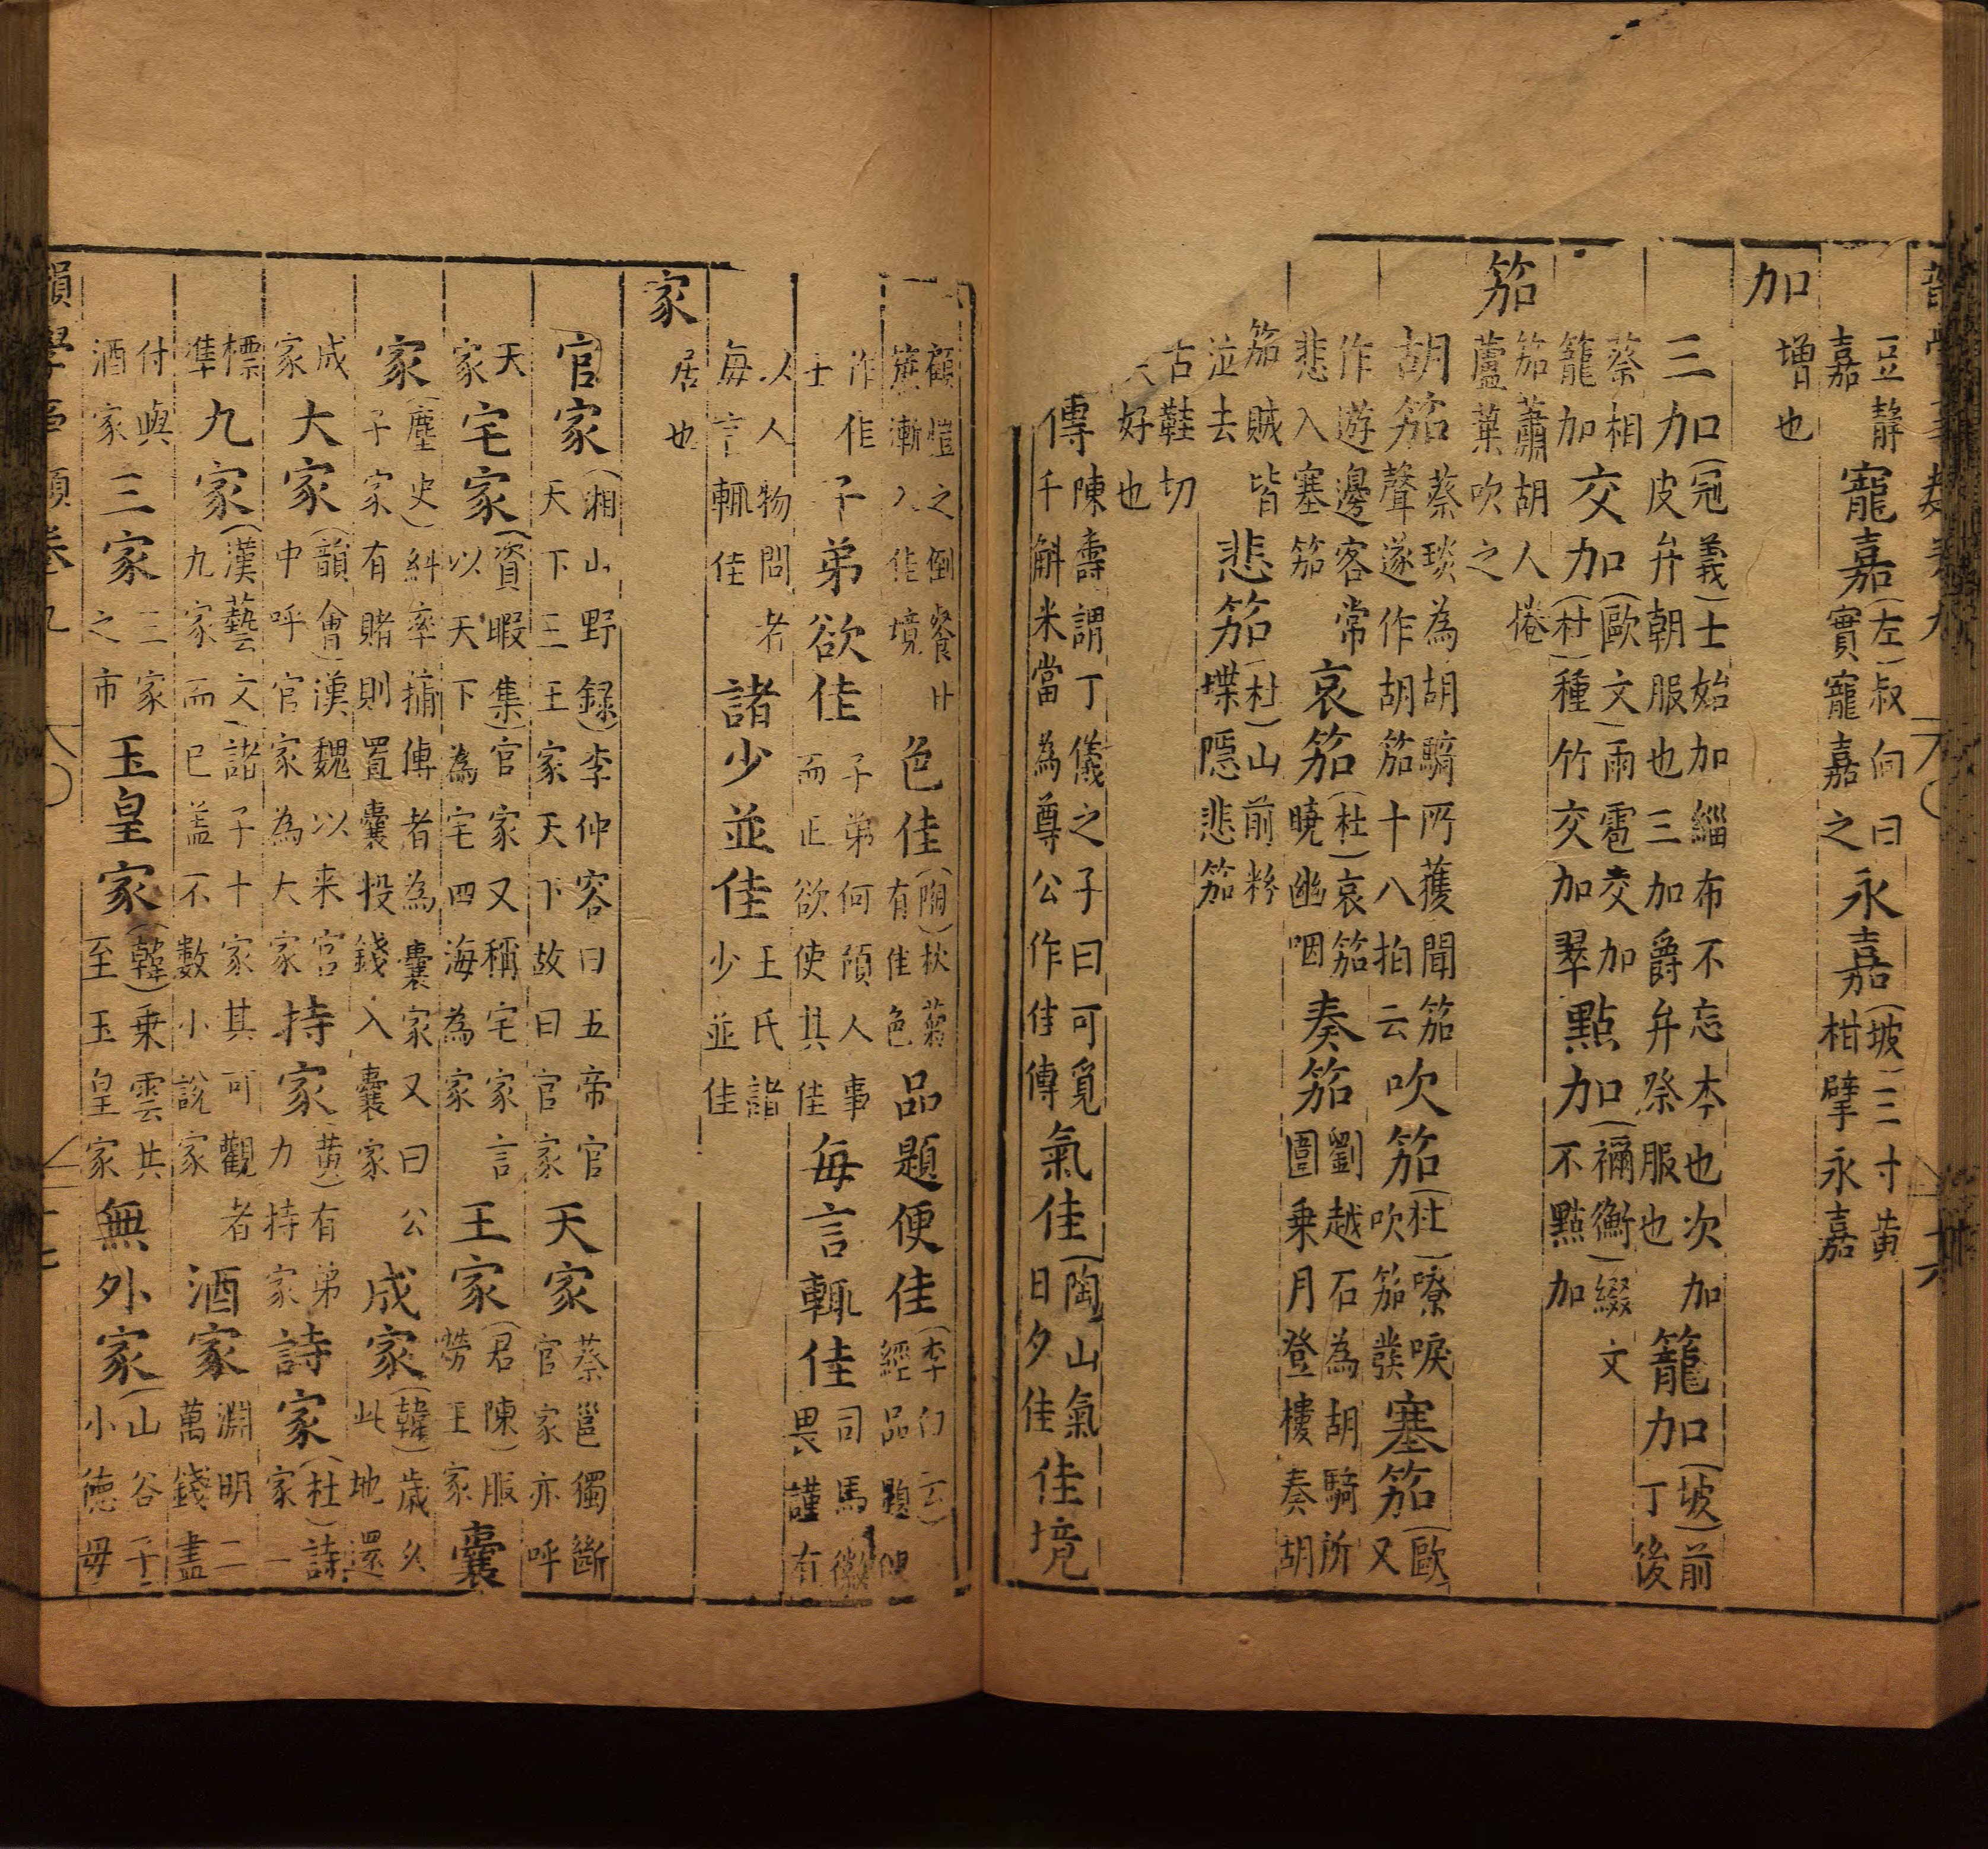 豆靜嘉 寵嘉(左)叔向曰實寵嘉之 永嘉(坡)三寸黃柑擘永嘉
加 增也
三加(冠義)士始加緇布不忘本也次加皮弁朝服也三加爵弁祭服也 籠加(坡)前丁後
蔡相籠加 交加(歐文)雨雹交加(杜)種竹交加翠 點加(禰衡)綴文不點加
笳 笳蕭胡人捲蘆葉吹之
胡笳 蔡琰為胡騎所獲聞笳聲遂作胡笳十八拍云 吹笳(杜)嘹唳吹笳發 塞笳(歐)又
作遊邊客常悲入塞笳 哀笳(杜)哀笳曉幽咽 奏笳 劉越石為胡騎所圍乘月登樓奏胡
笳賊皆泣去 悲笳(杜)山前粉堞隱悲笳
古鞋切好也
傳 陳壽謂丁儀之子曰可覓千斛米當為尊公作佳傳 氣佳(陶)山氣日夕佳 佳境
顧愷之倒餐甘蔗漸入佳境 色佳(陶)秋菊有佳色 品題便佳(李白云)經品題便
作佳士 子弟欲佳 子弟何預人事而正欲使其佳 每言輒佳 司馬徽畏謹有
人人物問者每言輒佳 諸少並佳 王氏諸少並佳
家 居也
官家(湘山野錄)李仲容曰五帝官天下三王家天下故曰官家 天家 蔡邕獨斷官家亦呼
天家 宅家(資暇集)官家又稱宅家言以天下為宅四海為家 王家(君陳)服勞王家 囊
家(麈史)糾率摴博者為囊家又曰公子家有賭則置囊投錢入囊家 成家(韓)歲久此地還
成家 大家(韻會)漢魏以来宮中呼官家為大家 持家(黃)有弟力持家 詩家(杜)詩家一
標準 九家(漢藝文)諸子十家其可觀者九家而已盖不數小說家 酒家 淵明二萬錢盡
付與酒家 三家 三家之市 玉皇家(韓)乗雲共至玉皇家 無外家(山谷)子小德毋
韻學事類卷九